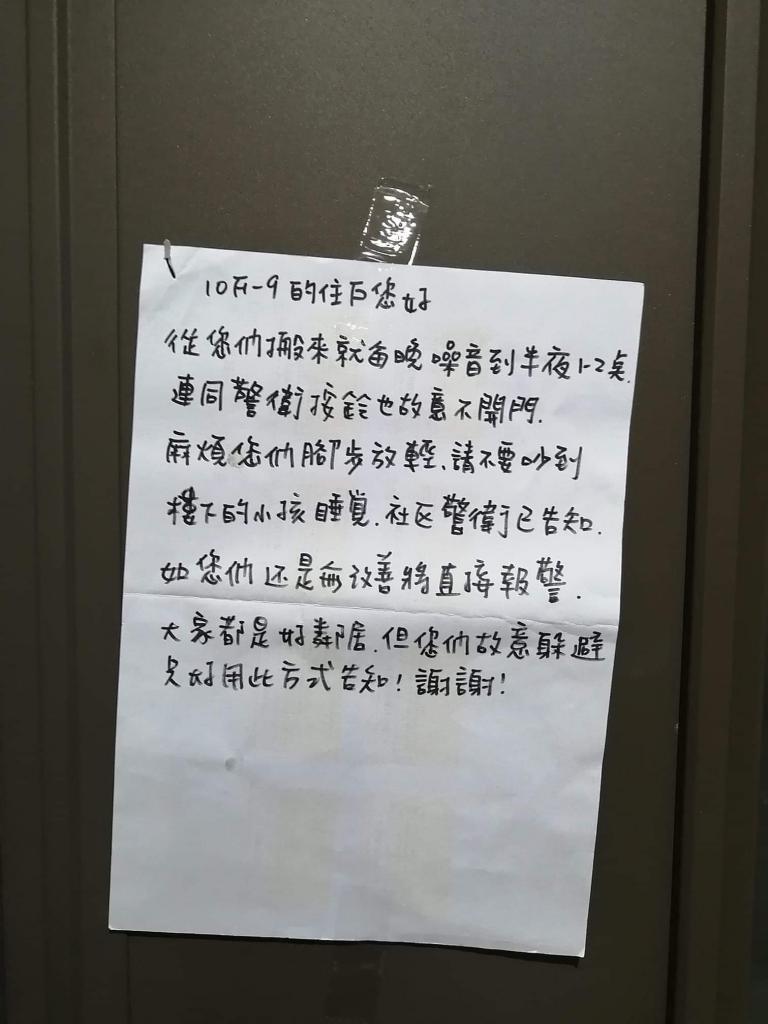 10F-9的住戶您好
從您們搬來就每晚噪音到半夜1-2點.
連同警衛按鈴也故意不開門.
麻煩您們腳步放輕、請不要吵到
樓下的小孩睡覺.社区警衛已告知.
如您們还是無改善將直接報警.
大家都是好鄰居.但您們故意躲避
只好用此方式告知!謝謝!